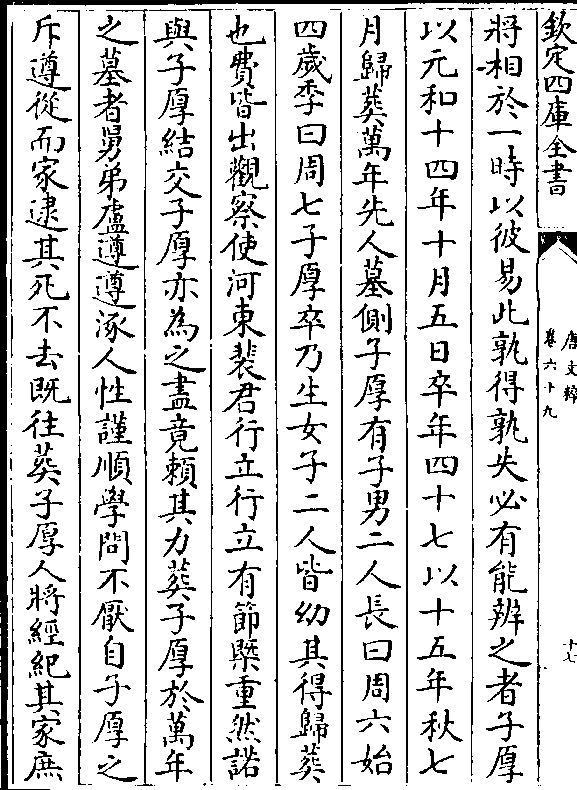 欽定四庫全書
唐文粹
卷六十九
十七
將相於一時以彼易此孰得孰失必有能辨之者子厚
以元和十四年十月五日卒年四十七以十五年秋七
月歸葬萬年先人墓側子厚有子男二人長曰周六始
四歲季曰周七子厚卒乃生女子二人皆幼其得歸葬
也費皆出觀察使河東裴君行立行立有節槩重然諾
與子厚結交子厚亦為之盡竟賴其力葬子厚於萬年
之墓者舅弟盧遵遵涿人性謹順學問不厭自子厚之
斥遵從而家逮其死不去既往葬子厚人將經紀其家庶